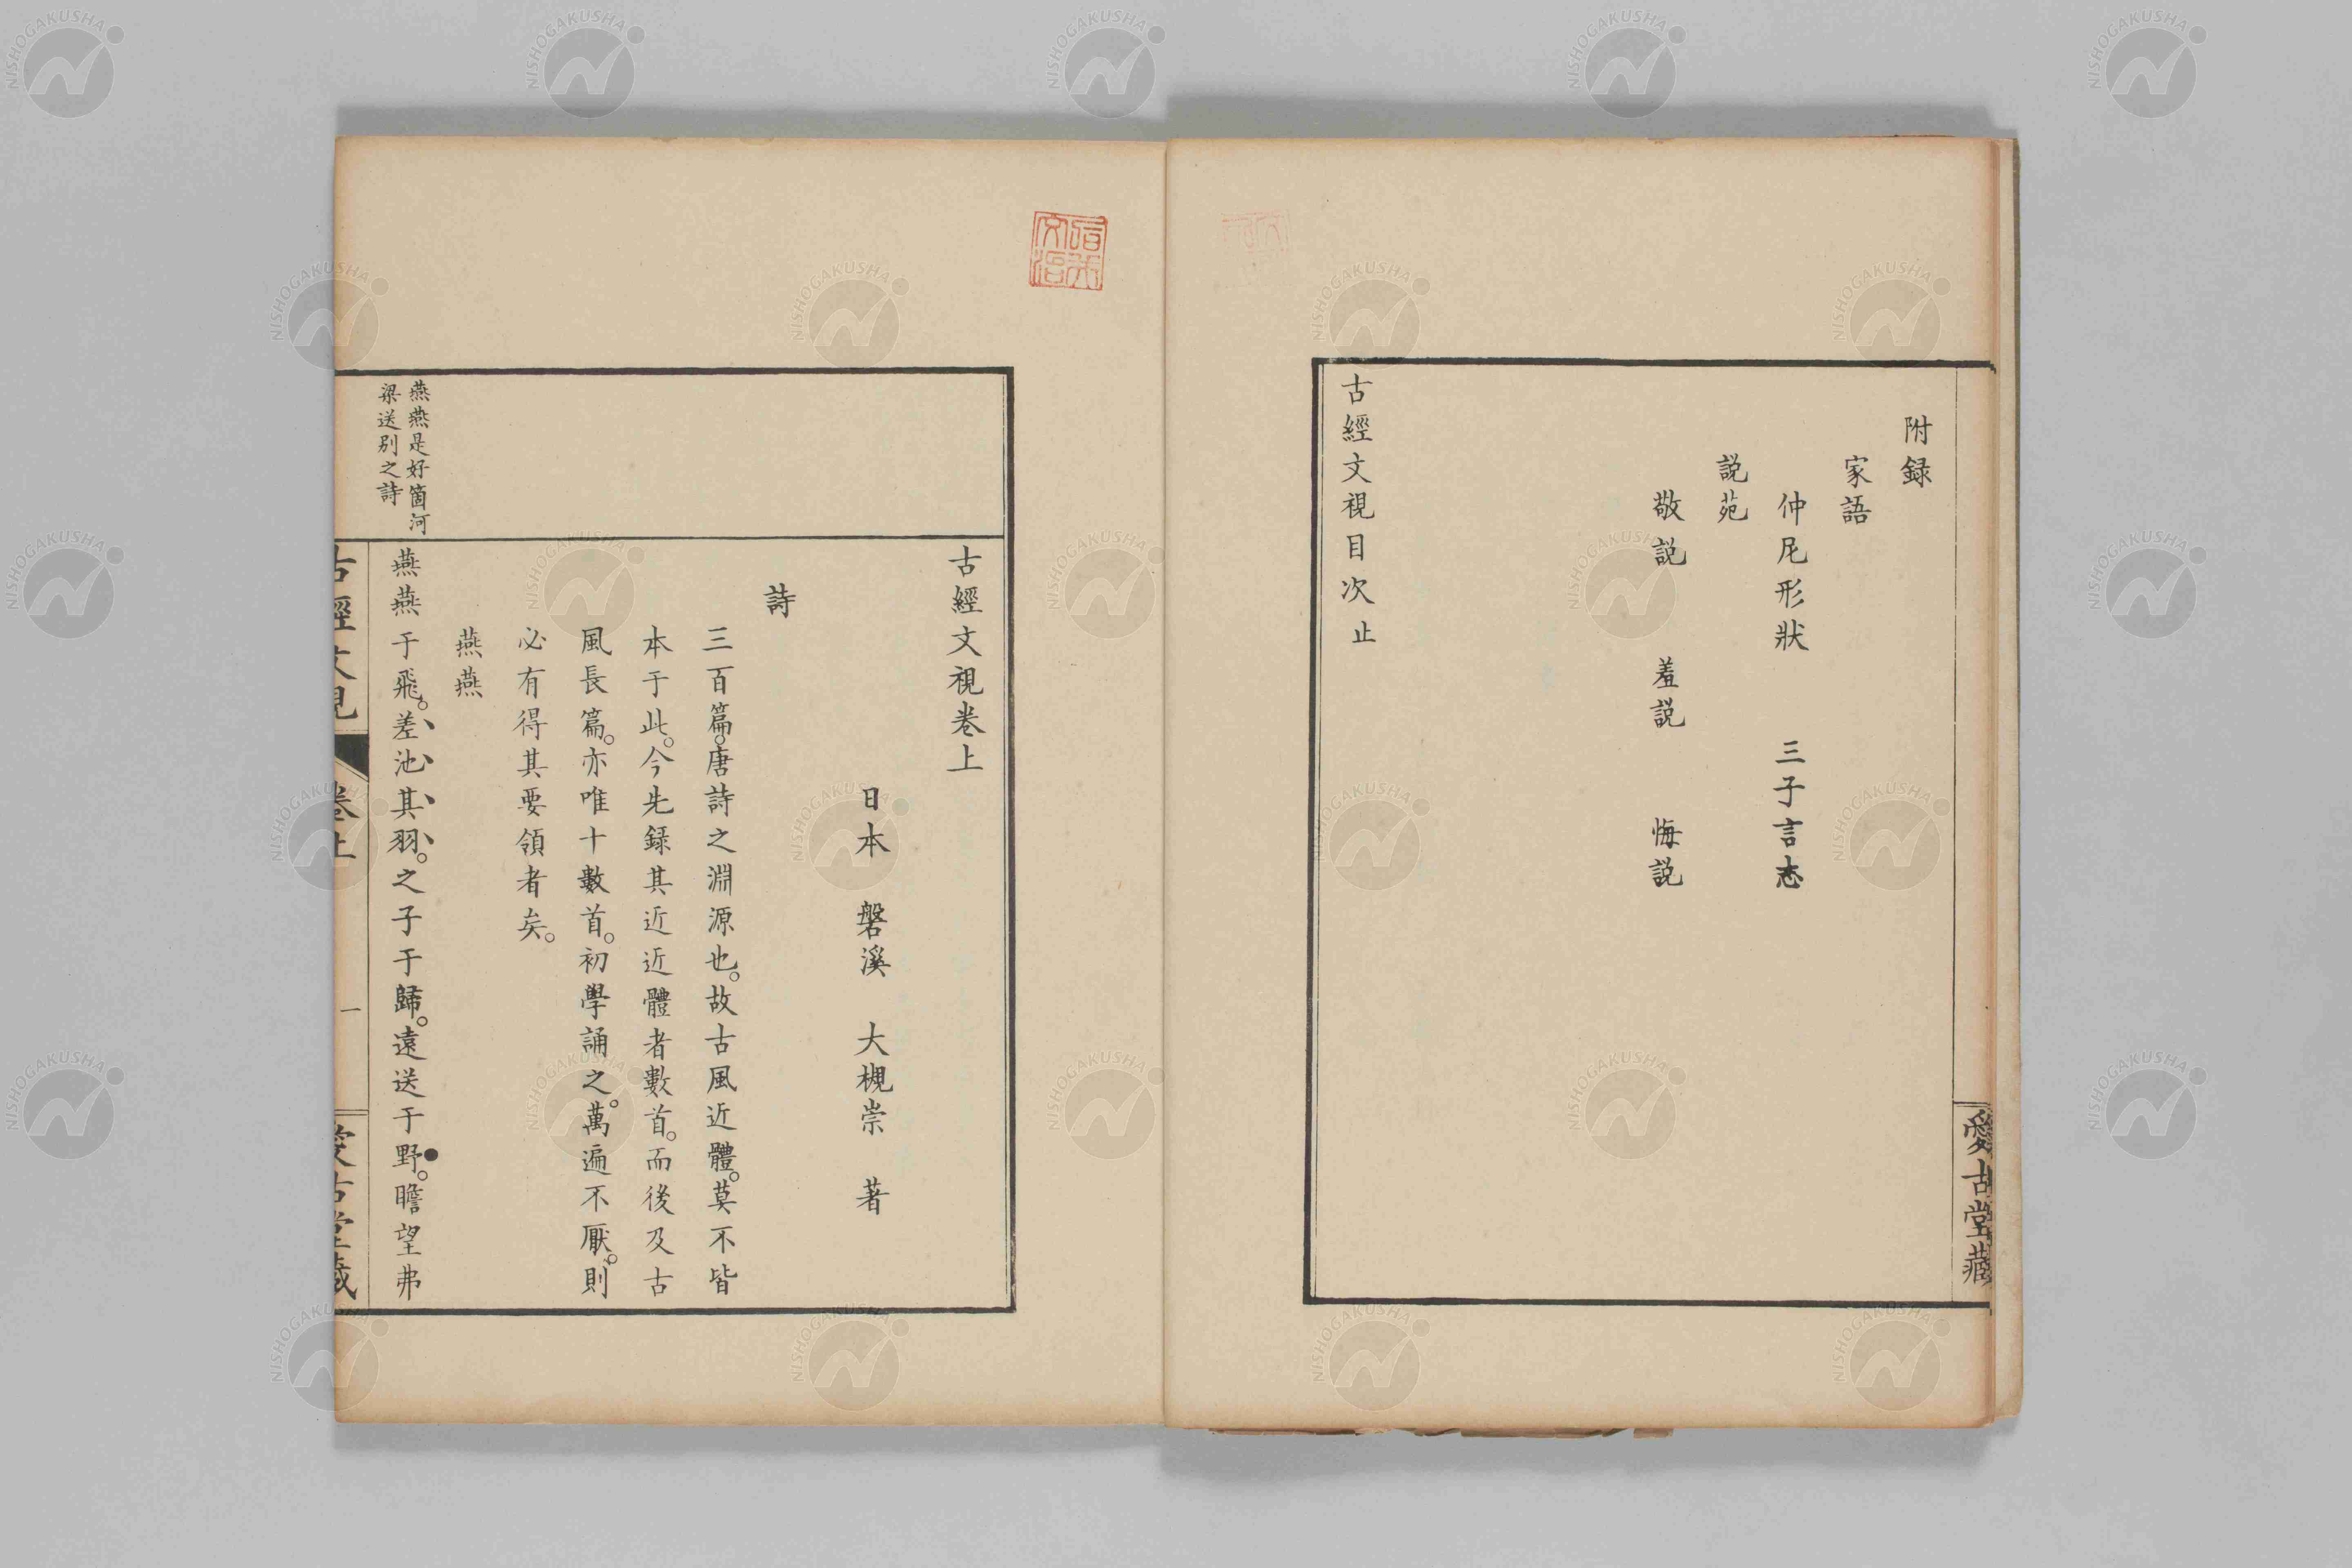 附録
家語
仲尼形狀　三子言志
說苑
敬說　羞說　悔說
古經文視目次止
愛古堂藏
古經文視卷上
日本　磐溪　大槻崇　著
詩
三百篇。唐詩之淵源也。故古風近體。莫不皆
本于此。今先録其近近體者數首。而後及古
風長篇。亦唯十數首。初學誦之。萬遍不厭。則
必有得其要領者矣。
燕燕
燕燕是好箇河
梁送別之詩
燕燕于飛。差池其羽。之子于歸。遠送于野。瞻望弗
古經文視　卷上　一　愛古堂藏
NISHOGAKUSHA